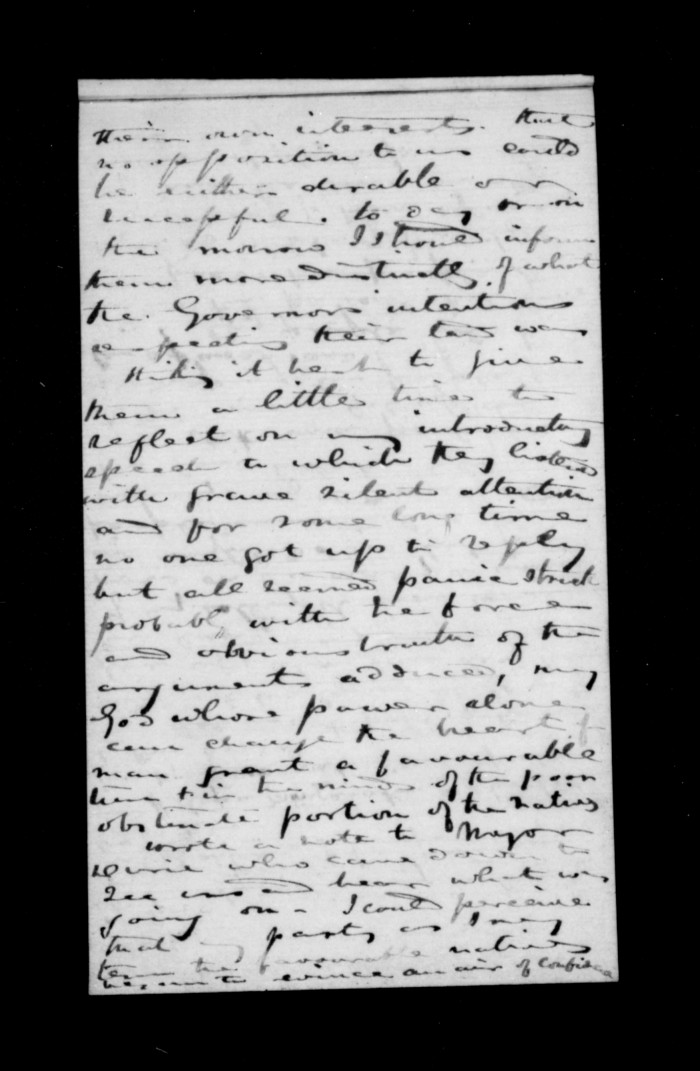 their own interests. that
no opposition to us could
be either durable or
successful. to day or on
the morrow I should inform
them more distinctly of what
the Governors intentions
respecting their land was
thinking it best to give
them a little time to
reflect on my introductory
speech to which they listened
with grave silent attention
and for some long time
no one got up to reply
but all seemed panic struck
probably with the force
and obvious truth of the
arguments adduced, may
God whose power alone
can change the heart of
man grant a favourable
turn in the minds of the poor
obstinate portion of the natives
wrote a note to Major
who came down to
see us and hear what was
going on - I could perceive
that my party as I may
term the favourable natives
began to evince an air of confidence